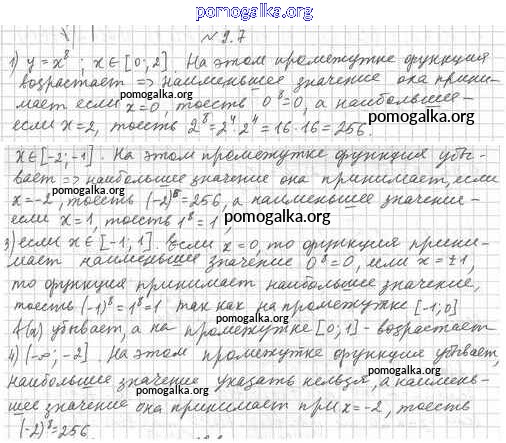 pomogalka.org
№ 9.7
1) y = x⁸ ; x ∈ [0; 2]. На этом промежутке функция
возрастает => наименьшее значение она прини-
pomogalka.org
мает если x=0, тоесть 0⁸=0, а наибольшее –
pomogalka.org
если x=2, тоесть 2⁸=2⁴·2⁴=16·16=256.
x∈[-2;-1]. На этом промежутке функция убы-
pomogalka.org
вает => наибольшее значение она принимает, если
x=-2, тоесть (-2)⁸=256, а наименьшее значение –
если x=1, тоесть 1⁸=1,
pomogalka.org
3) если x∈[-1; 1]. Если x=0, то функция прини-
мает наименьшее значение 0⁸=0, если x=±1,
pomogalka.org
то функция принимает наибольшее значение,
тоесть (-1)⁸=1⁸=1 так как на промежутке [-1; 0]
pomogalka.org
f(x) убывает, а на промежутке [0; 1] - возрастает
4) (-∞; -2]. На этом промежутке функция убывает,
pomogalka.org
наибольшее значение указать нельзя, а наимень-
шее значение она принимает при x=-2, тоесть
(-2)⁸=256.
pomogalka.org